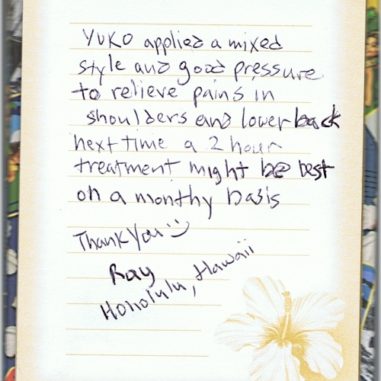 Yuko applied a mixed
style and good pressure
to relieve pains in
shoulders and lower back
next time a 2 hour
treatment might be best
on a monthy basis
Thank You :)
Ray
Honolulu, Hawaii